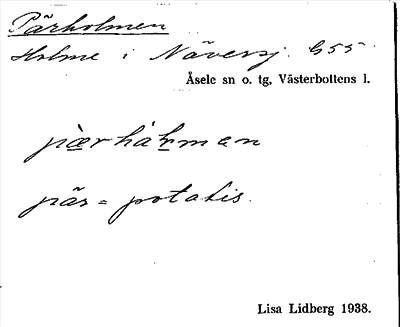 Pärholmen
Holme i Näversj. G55
Åsele sn o. tg, Västerbottens l.
pä̀rhåḻmen
pär = potatis.
Lisa Lidberg 1938.